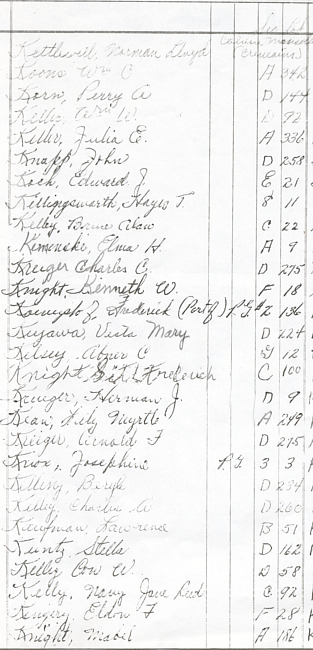 Sec Lot
Kettlewell, Norman Lloyd (Cremains)
Koons, Wm C A 342
Horn, Perry A D 144
Kelley, Wm W. D 92
Keller, Julia E. A 336
Knapp, John D 258
Koch, Edward J. E 21
Killingsworth, Hayes T. 8 11
Kelley, Bruce Alan C 22
Kiminski, Elma H. A 9
Kreiger Charles C. D 275
Knight, Kenneth W. F 18
Frederick P.G. 2 136
Kujawa, Vista Mary D 224
Kelsey, Abner C 12
Knight C 100
Krueger, Herman J. D 9
Kean, Lily Myrtle A 249
Kreiger, Arnold F D 275
Knox, Josephine P.G. 3 3
Kelling, D 234
Kelley, Charles A D 260
Kaufman, Lawrence B 51
Kuntz, Stella D 162
Kelley, Con W. D 58
Kelly, Nancy Jane C 92
Kingery, Eldon F F 28
Knight, Mabel A 186